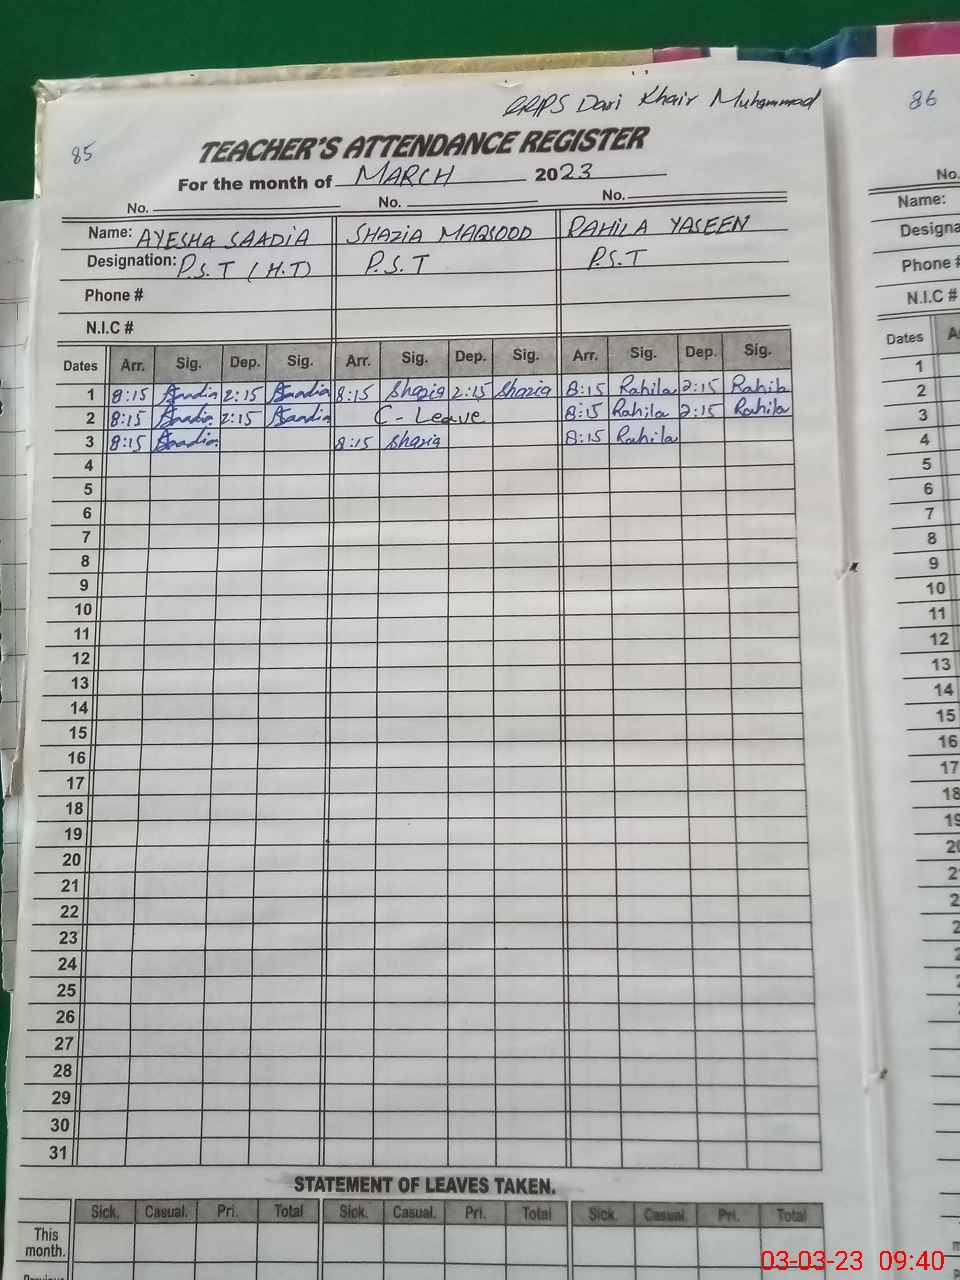 Dari Khair Muhammad
85
TEACHER'S ATTENDANCE REGISTER
For the month of MARCH 2023
No. No. No.
Name: AYESHA SAADIA SHAZIA MAQSOOD RAHILA YASEEN
Designation: P.S.T (H.T) P.S.T P.S.T
Phone #
N.I.C #
Dates Arr. Sig. Dep. Sig. Arr. Sig. Dep. Sig. Arr. Sig. Dep. Sig.
1 8:15 Saadia 2:15 Saadia 8:15 Shazia 2:15 Shazia 8:15 Rahila 2:15 Rahila
2 8:15 Saadia 2:15 Saadia C-Leave 8:15 Rahila 2:15 Rahila
3 8:15 Saadia 8:15 Shazia 8:15 Rahila
4
5
6
7
8
9
10
11
12
13
14
15
16
17
18
19
20
21
22
23
24
25
26
27
28
29
30
31
STATEMENT OF LEAVES TAKEN.
Sick. Casual. Pri. Total Sick. Casual. Pri. Total Sick. Casual. Pri. Total
This
month.
86
No.
Name:
Phone #
N.I.C #
Dates
1
2
3
4
5
6
7
8
9
10
11
12
13
14
15
16
17
18
03-03-23 09:40